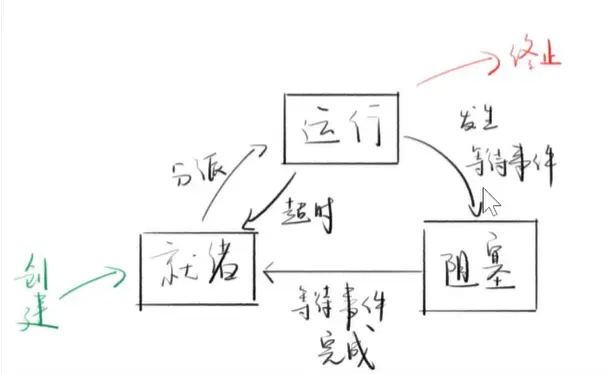 终止
运行
发生
等待事件
分派
超时
就绪
阻塞
创建
等待事件
完成